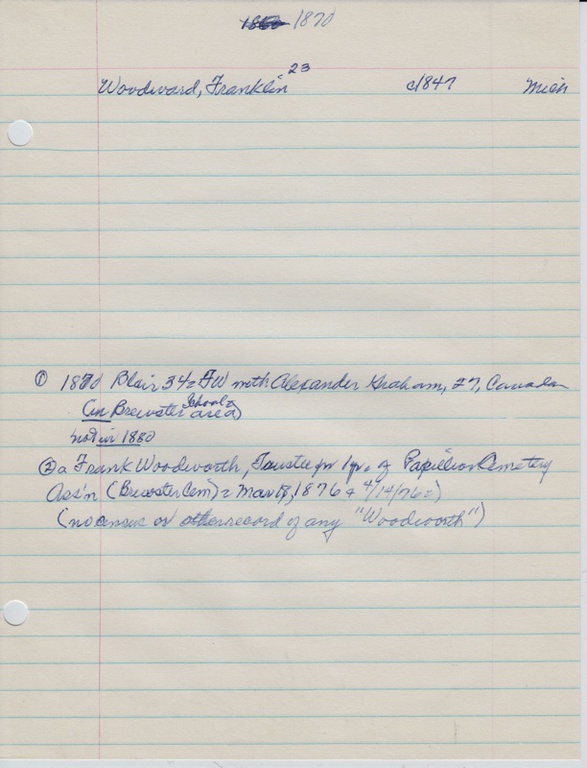 1870
Woodward, Franklin 23 c1847 Mich
① 1870 Blair 34 = FW with Alexander Graham, 27, Canada
(in Brewster School area)
not in 1880
② a Frank Woodworth, Trustee for 1 yr. of "Papillion Cemetery
Ass'n (Brewster Cem) = Mar 1876 & 4/14/76 =)
(no census or other record of any "Woodworth")